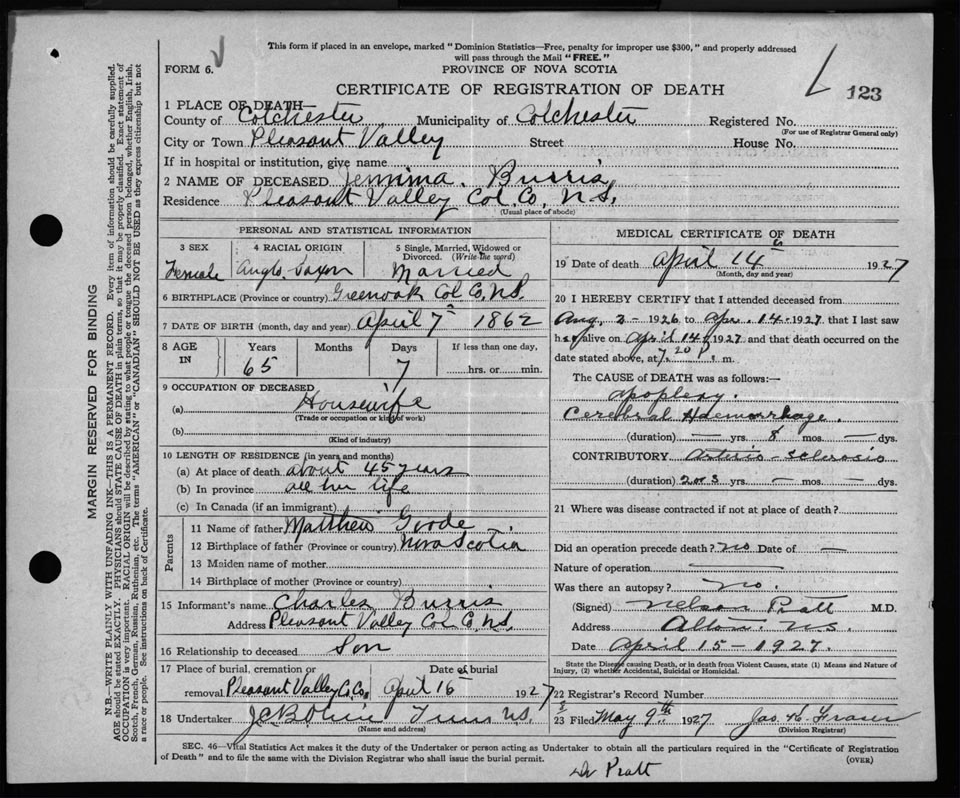 This form if placed in an envelope, marked "Dominion Statistics—Free, penalty for improper use $300," and properly addressed
will pass through the Mail "FREE."
FORM 6.
PROVINCE OF NOVA SCOTIA
CERTIFICATE OF REGISTRATION OF DEATH
123
1 PLACE OF DEATH—
County of Colchester Municipality of Colchester Registered No.
(For use of Registrar General only)
City or Town Pleasant Valley Street House No.
If in hospital or institution, give name
2 NAME OF DECEASED Jemima Burris
Residence Pleasant Valley Col. Co. N.S.
(Usual place of abode)
PERSONAL AND STATISTICAL INFORMATION
3 SEX 4 RACIAL ORIGIN 5 Single, Married, Widowed or
Divorced. (Write the word)
Female Anglo Saxon Married
6 BIRTHPLACE (Province or country) Greenoak Col Co. N.S.
7 DATE OF BIRTH (month, day and year) April 7 1862
8 AGE IN Years Months Days If less than one day,
65 7 hrs. or min.
9 OCCUPATION OF DECEASED
(a) Housewife
(Trade or occupation or kind of work)
(b)
(Kind of industry)
10 LENGTH OF RESIDENCE (in years and months)
(a) At place of death about 45 years
(b) In province all her life
(c) In Canada (if an immigrant)
Parents
11 Name of father Matthew Goode
12 Birthplace of father (Province or country) Nova Scotia
13 Maiden name of mother
14 Birthplace of mother (Province or country)
15 Informant's name Charles Burris
Address Pleasant Valley Col Co. N.S.
16 Relationship to deceased Son
17 Place of burial, cremation or Date of burial
removal Pleasant Valley Co. Co. April 16 1927
18 Undertaker N.S.
(Name and address)
MEDICAL CERTIFICATE OF DEATH
19 Date of death April 14 1927
(Month, day and year)
20 I HEREBY CERTIFY that I attended deceased from
Aug. 2 - 1926 to Apr. 14 - 1927 that I last saw
her alive on April 14 1927 and that death occurred on the
date stated above, at 7 20 P. m.
The CAUSE of DEATH was as follows:—
apoplexy.
Cerebral Haemorrhage.
(duration) — yrs. 8 mos. — dys.
CONTRIBUTORY Arterio-sclerosis
(duration) 2 or 3 yrs. — mos. — dys.
21 Where was disease contracted if not at place of death?
Did an operation precede death? no Date of —
Nature of operation —
Was there an autopsy? no.
(Signed) Nelson Pratt M.D.
Address Alton. N.S.
Date April 15 - 1927.
State the Disease causing Death, or in death from Violent Causes, state (1) Means and Nature of
Injury, (2) whether Accidental, Suicidal or Homicidal.
22 Registrar's Record Number
23 Filed May 9th 1927 Jas. K. Fraser
(Division Registrar)
SEC. 46—Vital Statistics Act makes it the duty of the Undertaker or person acting as Undertaker to obtain all the particulars required in the "Certificate of Registration
of Death" and to file the same with the Division Registrar who shall issue the burial permit.
(OVER)
Dr Pratt
MARGIN RESERVED FOR BINDING
N.B.—WRITE PLAINLY WITH UNFADING INK—THIS IS A PERMANENT RECORD. Every item of information should be carefully supplied.
AGE should be stated EXACTLY. PHYSICIANS should STATE CAUSE OF DEATH in plain terms, so that it may be properly classified. Exact statement of
OCCUPATION is very important. RACIAL ORIGIN will be described by stating to what people or tongue the deceased person belonged, whether English, Irish,
Scotch, French, German, Russian, Ruthenian, etc. The terms "AMERICAN" or "CANADIAN" SHOULD NOT BE USED as they express citizenship but not
a race or people. See instructions on back of Certificate.